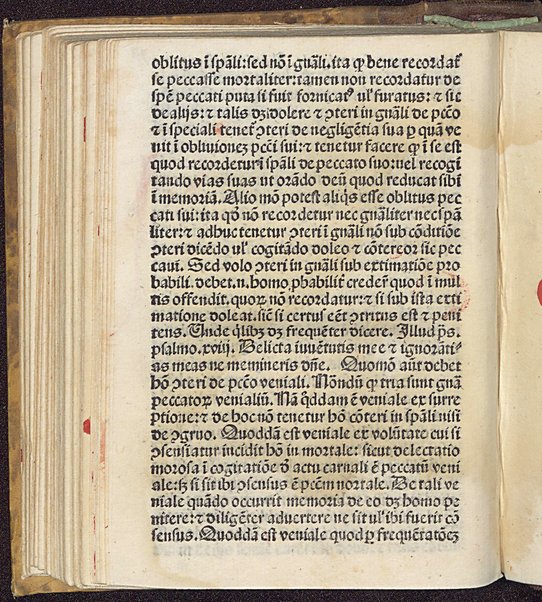 oblitus ī spāli: sed nō ī gn̄ali. ita ꝙ bene recordat᷑
se peccasse mortaliter: tamen non recordatur de
spē peccati puta si fuit fornicatꝰ ul᷑ furatus: ⁊ sic
de alijs: ⁊ talis dꝫ dolere ⁊ ꝯteri in gn̄ali de pctō
⁊ ī speciali tenet᷑ ꝯteri de negligētia sua ꝑ quā ve
nit ī obliuionez pcti̅ sui: ⁊ tenetur facere ꝙ ī se est
quod recordetur ī spāli de peccato suo: uel recogi
tando vias suas ut orādo deū quod reducat sibi
ī memoriā. Alio mō potest aliq̄s esse oblitus pec
cati sui: ita qd̓ nō recordetur nec gn̄aliter nec spā
liter: ⁊ adhuc tenetur ꝯteri ī gn̄ali nō sub cōditiōe
ꝯteri dicēdo ul᷑ cogitādo doleo ⁊ cōtereor sic pec
caui. Sed volo ꝯteri in gn̄ali sub extimatiōe pro
babili. debet .n. homo ꝓbabilit᷑ creder̄ quod ī mul
tis offendit. quoꝝ nō recordatur: ⁊ si sub ista exti
matione doleat. sic̄ si certus eēt ꝯtritus est ⁊ peni
tens. Unde ql̄ibꝫ dꝫ frequēter dicere. Illud ps̄.
psalmo .xxiiij. Delicta iuuētutis mee ⁊ ignorāti⸗
as meas ne memineris dn̄e. Quomō aūt debet
hō ꝯteri de pctō veniali. Nōndū ꝙ tria sunt gn̄a
peccatoꝝ venialiū. Nā q̇ddam ē veniale ex surre
ptione: ⁊ de hoc nō tenetur hō cōteri in spāli nisi
de ꝯgruo. Quoddā est veniale ex volūtate cui si
ꝯsensiatur incidit hō in mortale: sicut delectatio
morosa ī cogitatiōe d̄ actu carnali ē peccatū veni
ale: sꝫ si sit ibi ꝯsensus ē pctm̄ mortale. De tali ve
niale quādo occurrit memoria de eo dꝫ homo pe
nitere: ⁊ diligēter aduertere ne sit ul᷑ ibi fuerit cō
sensus. Quoddā est veniale quod ꝑ frequētatōeꝫ